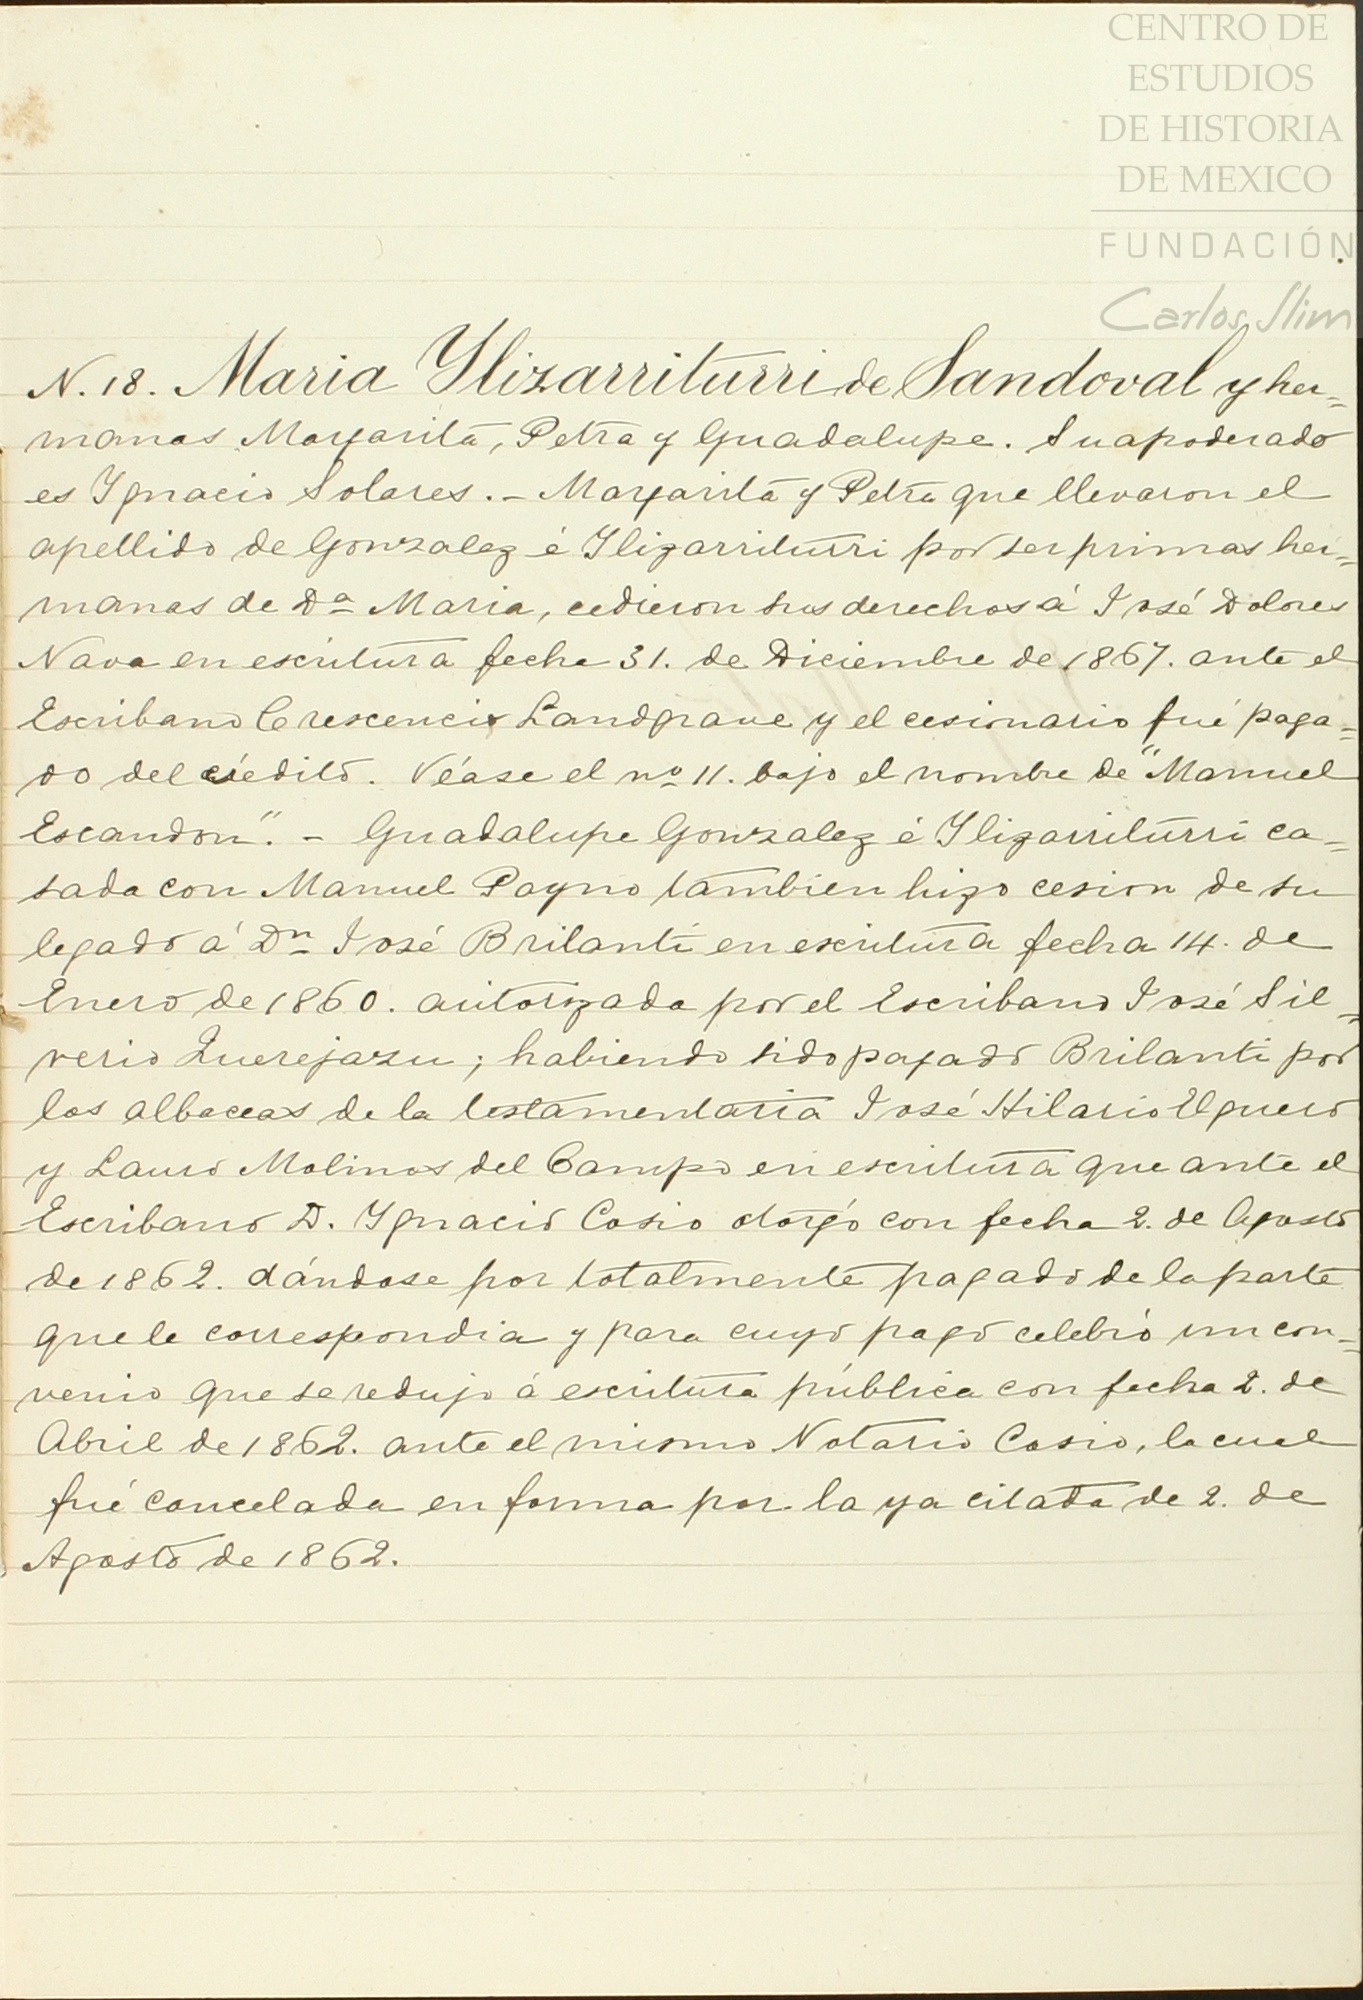 CENTRO DE
ESTUDIOS
DE HISTORIA
DE MEXICO
FUNDACIÓN
Carlos Slim
N. 18. Maria Ylizarriturri de Sandoval y her=
manas Margarita, Petra y Guadalupe. Su apoderado
es Ygnacio Solares. – Margarita y Petra que llevaron el
apellido de Gonzalez é Ylizarriturri por ser primas her=
manas de Dª Maria, cedieron sus derechos á José Dolores
Nava en escritura fecha 31. de Diciembre de 1867. ante el
Escribano Crescencio Landgrave y el cesionario fué paga=
do del crédito. Véase el nº 11. bajo el nombre de "Manuel
Escandon". – Guadalupe Gonzalez é Ylizarriturri ca=
sada con Manuel Payno tambien hizo cesion de su
legado á Dn José Brilanti en escritura fecha 14. de
Enero de 1860. autorizada por el Escribano José Sil=
verio Querejazu; habiendo sido pagado Brilanti por
los albaceas de la testamentaria José Hilario Elguero
y Lauro Molinos del Campo en escritura que ante el
Escribano D. Ygnacio Cosio otorgó con fecha 2. de Agosto
de 1862. dándose por totalmente pagado de la parte
que le correspondia y para cuyo pago celebró un con=
venio que se redujo á escritura pública con fecha 2. de
Abril de 1862. ante el mismo Notario Cosio, la cual
fué cancelada en forma por la ya citada de 2. de
Agosto de 1862.